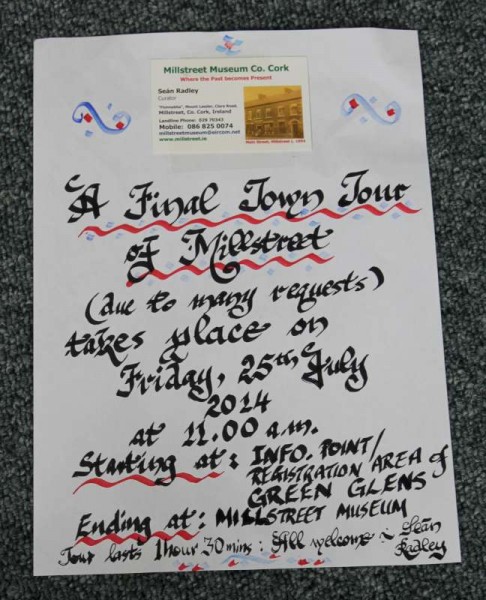 Millstreet Museum Co. Cork
Where the Past becomes Present
Seán Radley
Curator
Millstreet, Co. Cork, Ireland
Landline Phone: 029 70343
Mobile: 086 825 0074
millstreetmuseum@eircom.net
www.millstreet.ie
A Final Town Tour
of Millstreet
(due to many requests)
takes place on
Friday, 25th July
2014
at 11.00 a.m.
Starting at: INFO. POINT/
REGISTRATION AREA of
GREEN GLENS
Ending at: MILLSTREET MUSEUM
Tour lasts 1 hour 30 mins: All welcome :- Seán
Radley